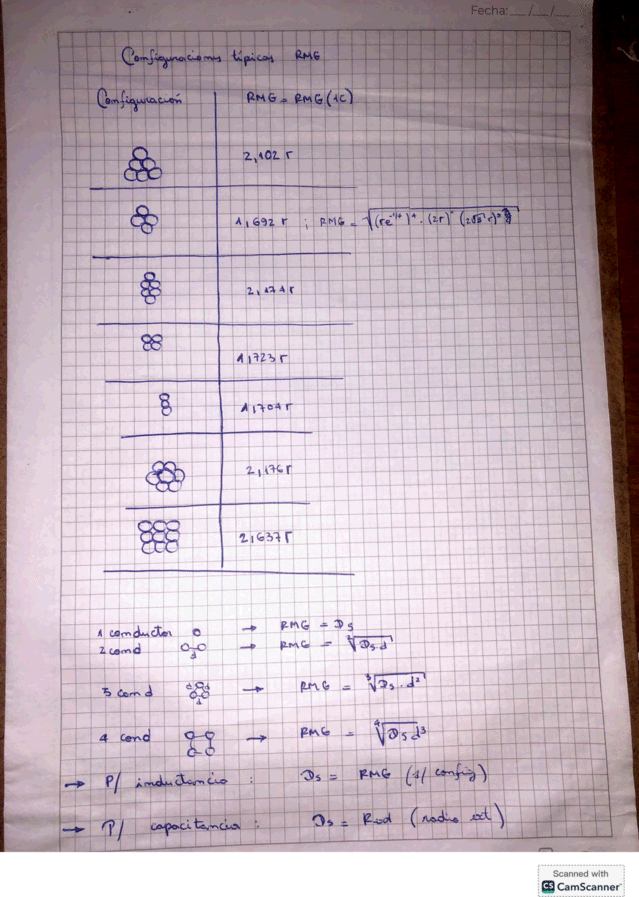 Fecha: __/__/__
Configuraciones típicas RMG
Configuración RMG = RMG (1C)
2,102 r
1,692 r ; RMG =
2,174 r
1,723 r
1,704 r
2,176 r
2,637 r
1 conductor → RMG = Ds
2 cond d → RMG = √Ds.d
3 cond d d d → RMG = ³√Ds . d²
4 cond → RMG = ⁴√Ds d³
→ P/ inductancia : Ds = RMG (1/ config)
→ P/ capacitancia : Ds = Rad (radio ext)
Scanned with
CS CamScanner